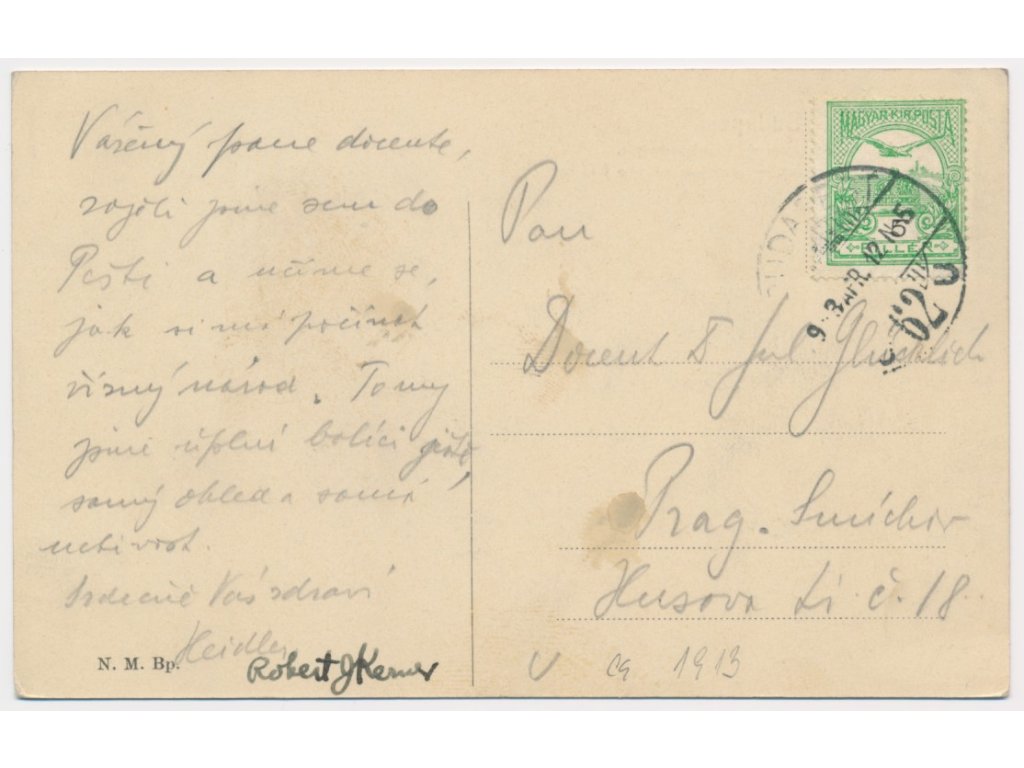 Vážený pane docente,
zajeli jsme sem do
Pešti a učíme se,
jak si má počínat
řízný národ. To my
jsme úplní
samý ohled a samá
Srdečně Vás zdraví
Heidler
Robert J Kerner
N. M. Bp.
MAGYAR KIR. POSTA
FILLÉR
BUDAPEST
9 3 APR 12 N 5
62
Pan
Docent Jul. Glücklich
Prag. Smíchov
Husova tř. č. 18.
ca 1913